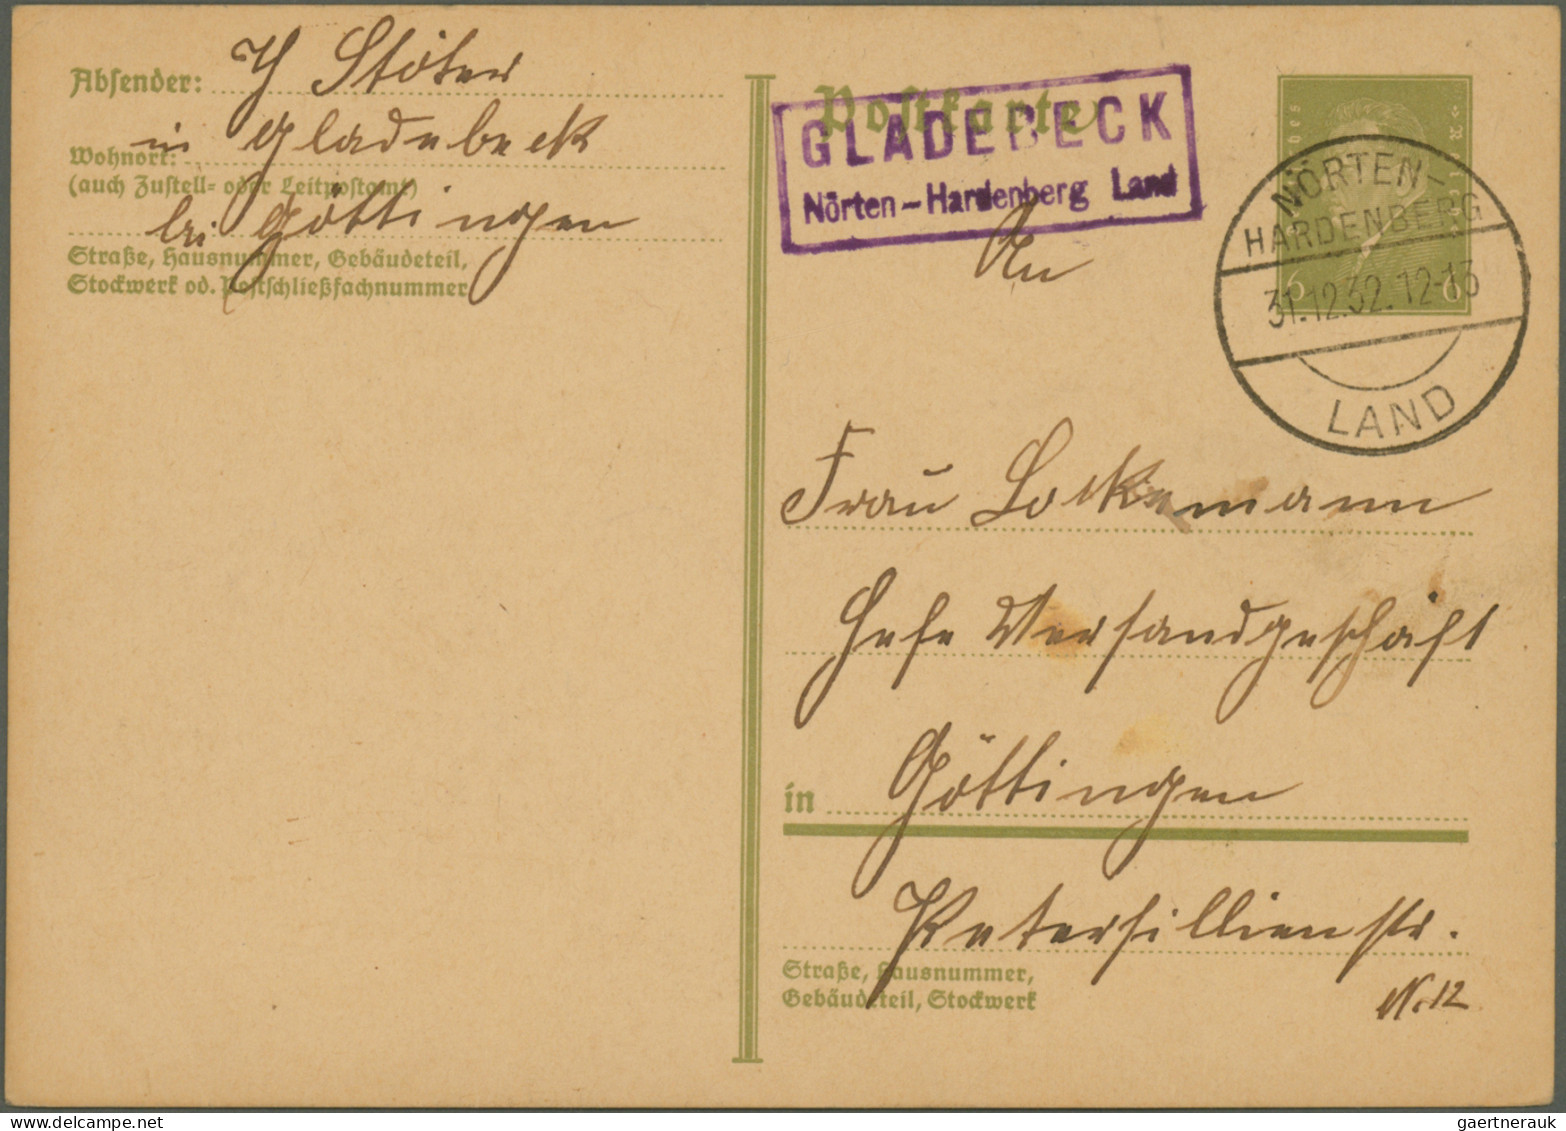 Absender: H Stöter
in Gladebeck
Wohnort:
(auch Zustell- oder Leitpostamt)
bei Göttingen
Straße, Hausnummer, Gebäudeteil,
Stockwerk od. Postschließfachnummer
Postkarte
GLADEBECK
Nörten-Hardenberg Land
6 6
NÖRTEN-
HARDENBERG
31.12.32.12-13
LAND
An
Frau Lockemann
Hefe Versandgeschäft
in Göttingen
Petersillienstr.
Straße, Hausnummer,
Gebäudeteil, Stockwerk
N. 12
gaertnerauk